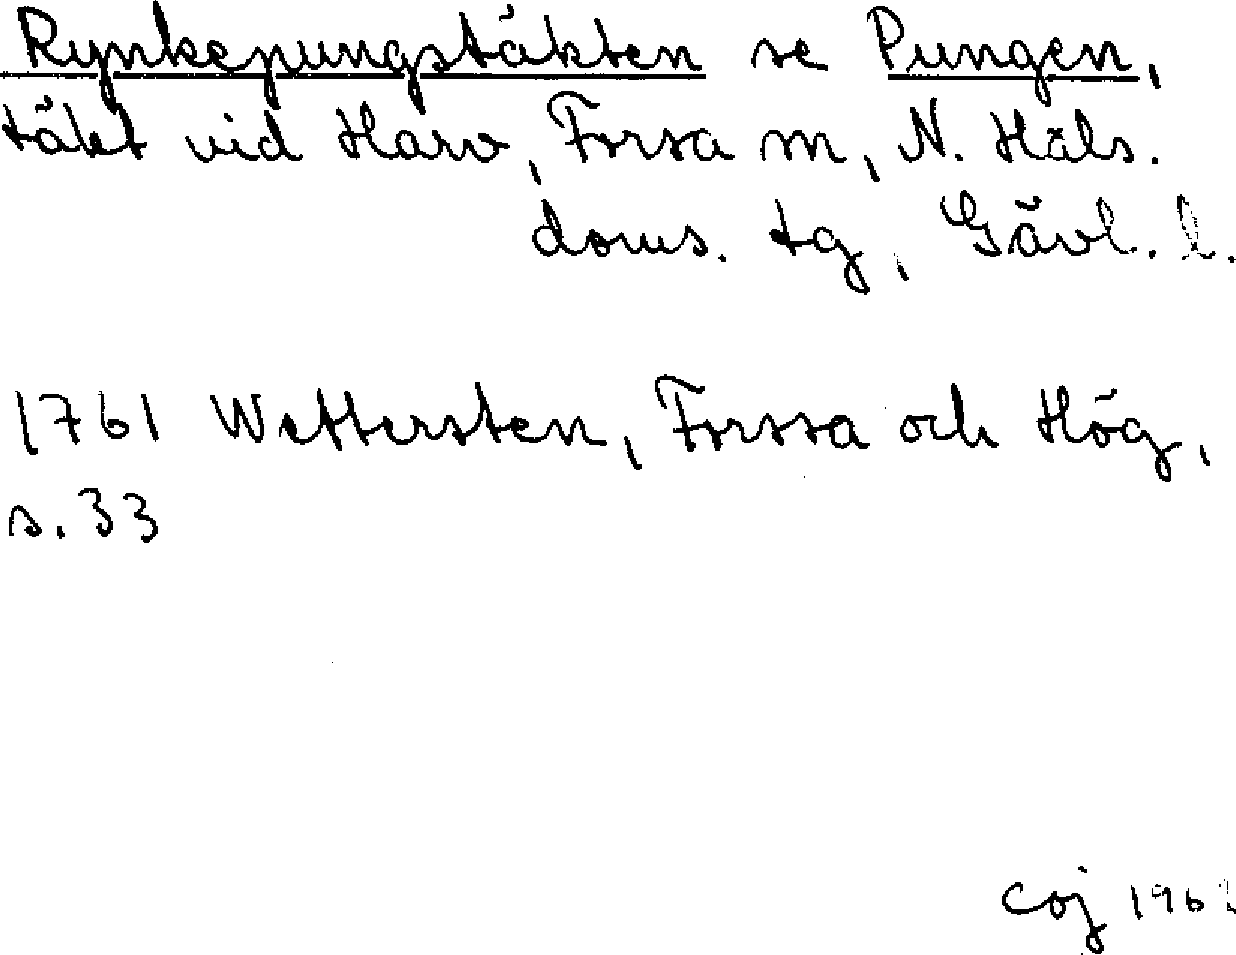 Rynkepungstäkten se Pungen,
täkt vid Harv, Forsa sn, N. Häls.
doms. tg, Gävl. l.
1761 Wettersten, Forssa och Hög,
s. 33
coj